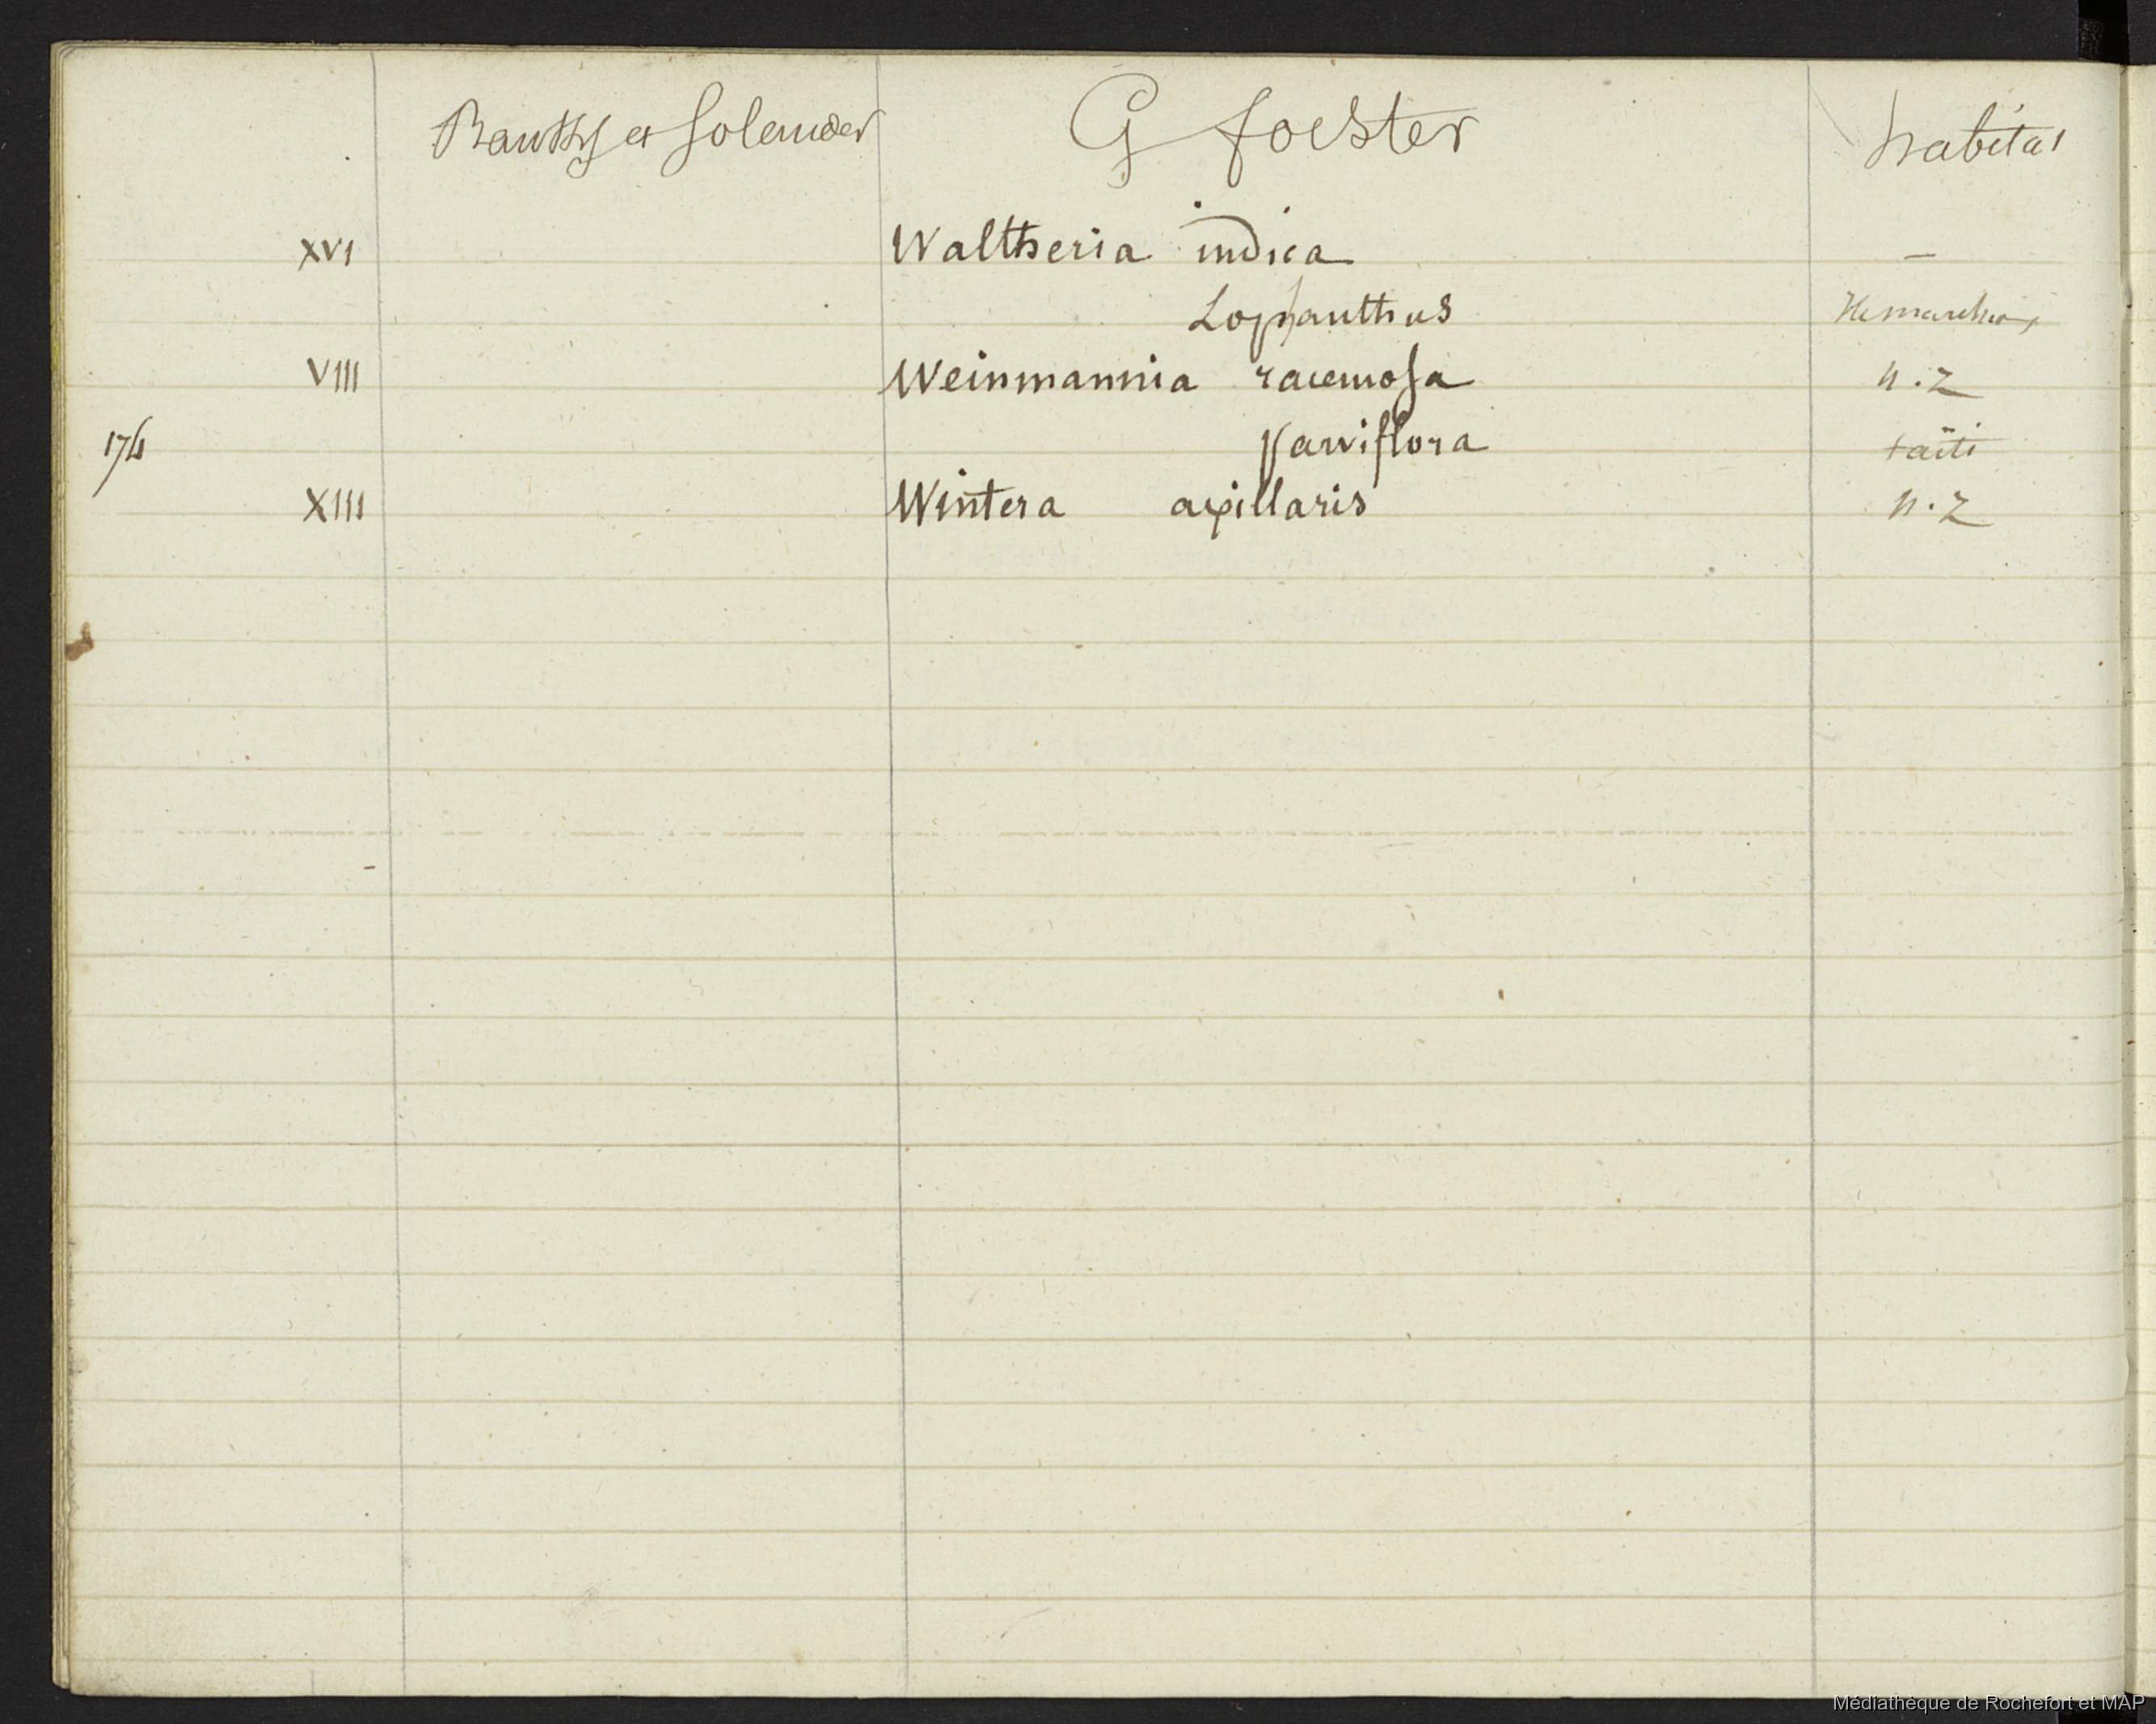 Banks et Solander G forster habitat
XVI Waltheria indica –
Lophanthus
VIII Weinmannia racemosa n.z
174 parviflora taïti
XIII Wintera axillaris n.z
Médiathèque de Rochefort et MAP